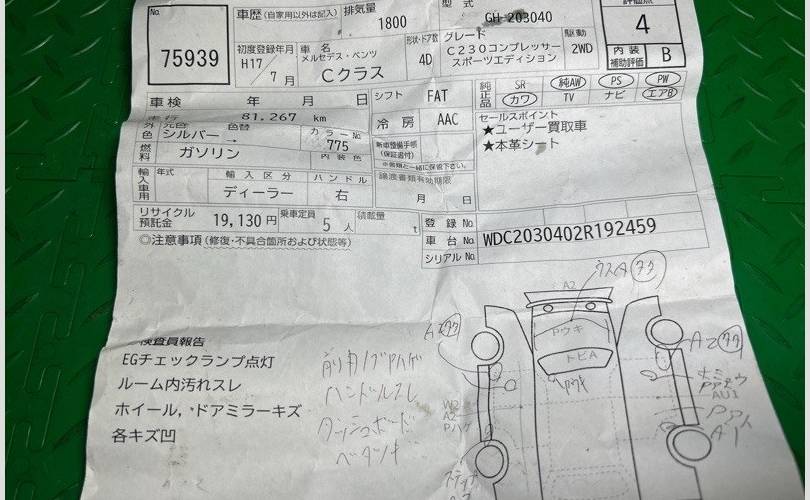 No.
75939
車歴 (自家用以外は記入)
排気量
1800
型式
GH-203040
評価点
4
初度登録年月
H17/7月
車名
メルセデス・ベンツ
Cクラス
形状・ドア数
4D
グレード
C230コンプレッサー
スポーツエディション
駆動
2WD
内装
補助評価
B
車検 年 月 日
シフト
FAT
純正品
SR 純AW PS PW
カワ TV ナビ エアB
走行
81.267 km
冷房
AAC
セールスポイント
★ユーザー買取車
★本革シート
外色
元色
シルバー
色替
→
カラーNo.
775
内装色
新車整備手帳
(保証書付)
※書類と一緒に保管下さい。
燃料
ガソリン
譲渡書類有効期限
月 日
輸入車用
年式
輸入区分
ディーラー
ハンドル
右
リサイクル
預託金
19,130円
乗車定員
5人
積載量
t
登録No.
車台No.
WDC2030402R192459
シリアルNo.
◎注意事項(修復・不具合箇所および状態等)
検査員報告
EGチェックランプ点灯
ルーム内汚れスレ
ホイール,・ドアミラーキズ
各キズ凹
ハンドルスレ
ダッシュボード
ベタツキ
A2
Pウキ
トビA
A2
W2
A2
A1